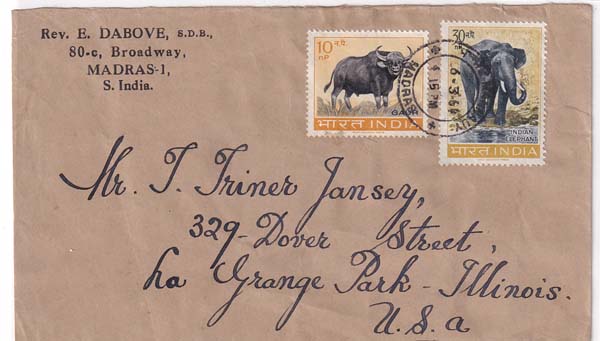 Rev. E. DABOVE, S.D.B.,
80-c, Broadway,
MADRAS-1,
S. India.
10 न.पै.
nP
GAUR
भारत INDIA
30 न.पै.
INDIAN
ELEPHANT
भारत INDIA
MADRAS
4 15 PM
Mr. T. Triner Jansey,
329-Dover Street,
La Grange Park - Illinois.
U.S.a